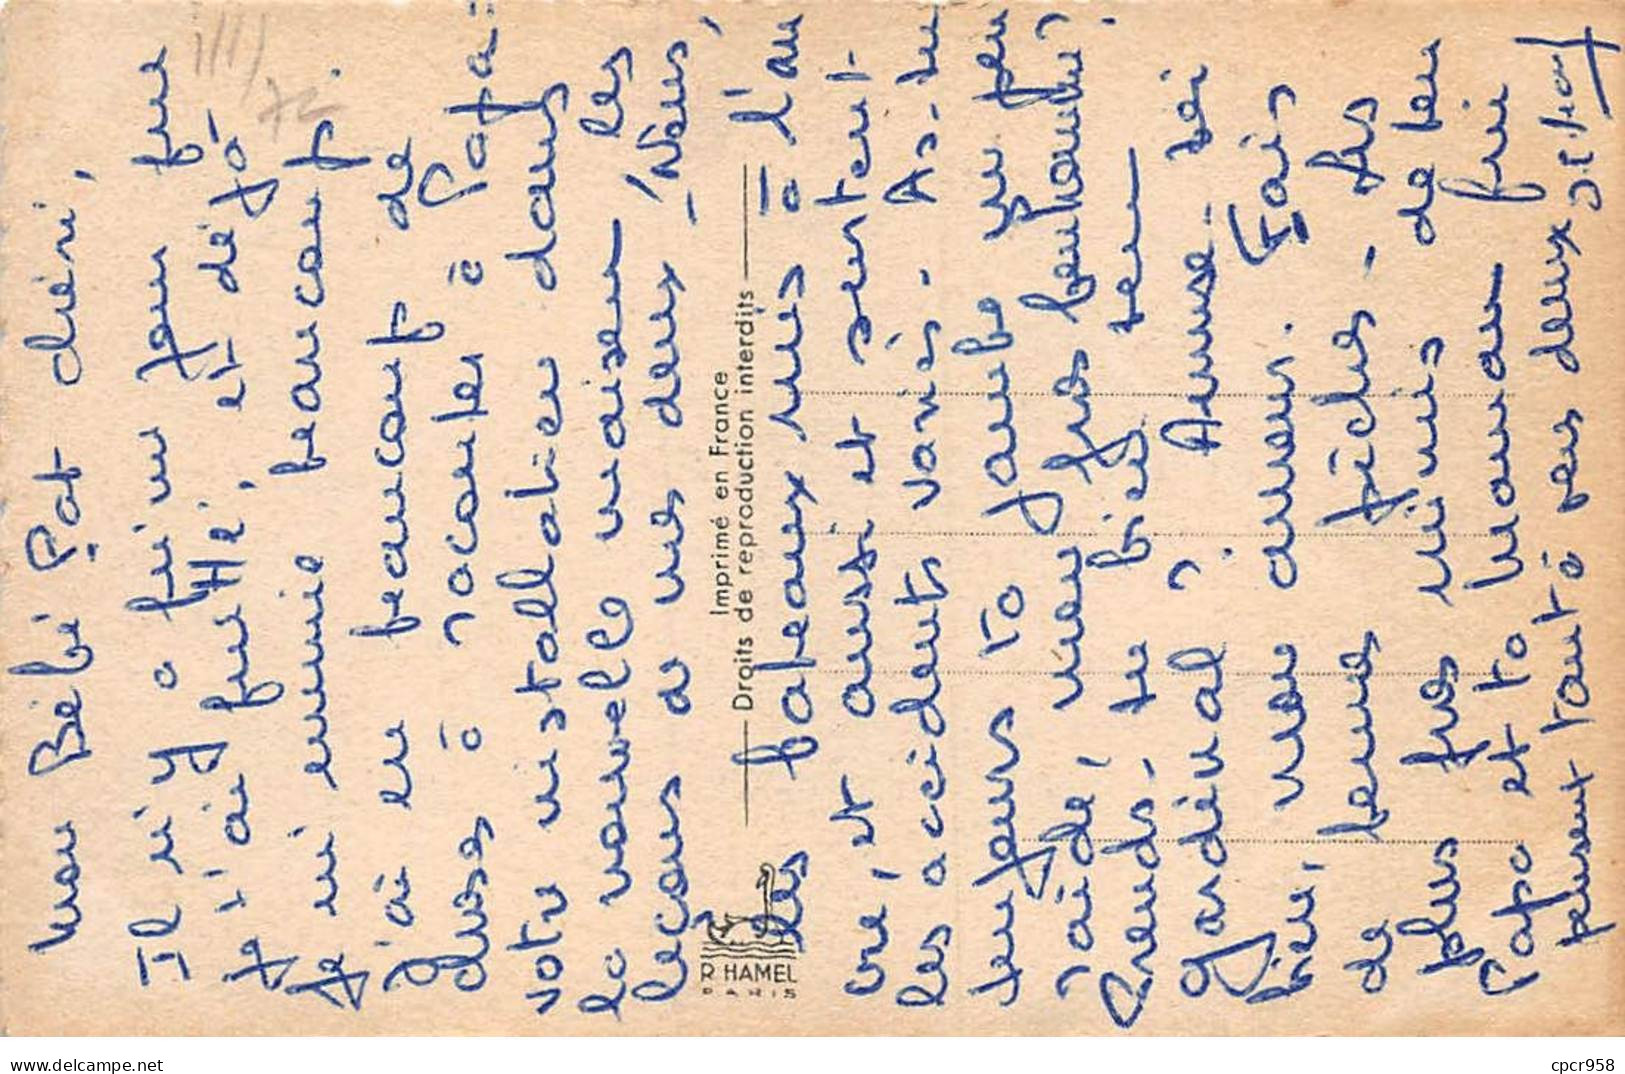 Mon Bébé Pat chéri,
Il n'y a qu'un jour que
je t'ai quitté, et déjà
je m'ennuie beaucoup.
J'ai eu beaucoup de
choses à raconter à Papa =
votre installation dans
la nouvelle maison les
leçons de nos deux
les bateaux mis à l'eau
et aussi et surtout
les accidents variés - As-tu
toujours ta jambe un peu
raide, mon gros bonhomme ?
Prends-tu bien ton
Gardénal ? Amuse-toi
bien, mon amour. Fais
de bonnes pêches - Les
plus gros mimis de ton
Papa et ta Maman qui
pensent tant à vous deux
Imprimé en France
Droits de reproduction interdits
R HAMEL
PARIS
72
cpcr958
www.delcampe.net